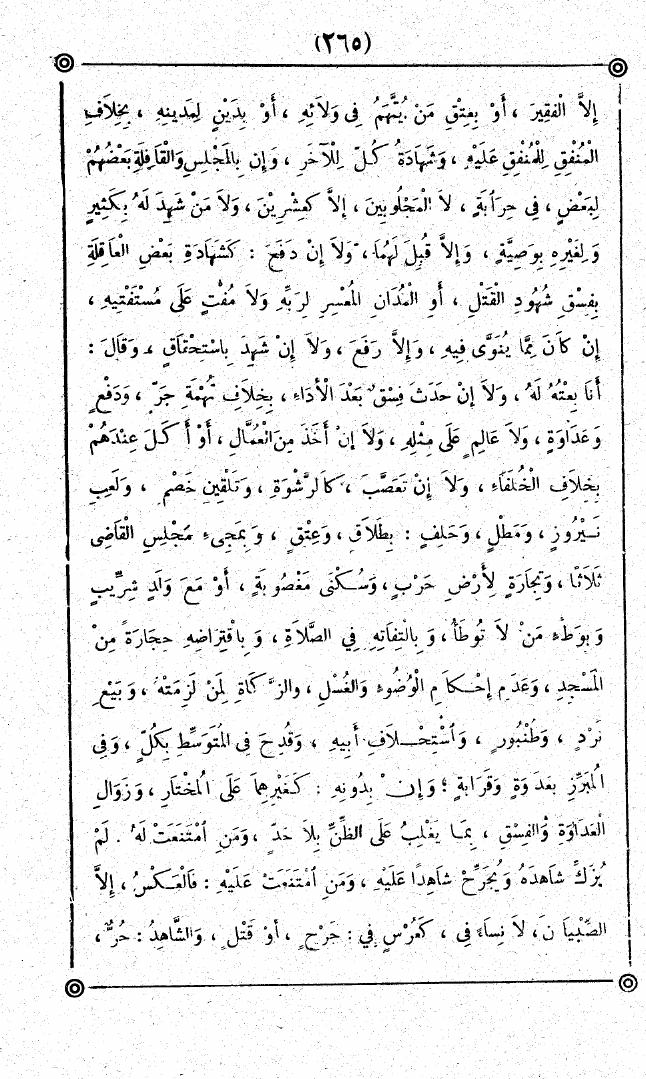 (٢٦٥)
إِلاَّ الْفَقِيرَ ، أَوْ بِعِتْقِ مَنْ يُتَّهَمُ فِى وَلَائِهِ ، أَوْ بِدَيْنٍ لِمَدِينِهِ ، بِخِلَافِ
الْمُنْفِقِ لِلْمُنْفَقِ عَلَيْهِ ، وَشَهَادَةُ كُلٍّ لِلْآخَرِ ، وَإِن بِالْمَجْلِسِ وَالْقَافِلَةِ بَعْضُهُمْ
لِبَعْضٍ ، فِى حِرَابَةٍ ، لاَ الْمَجْلُوبِينَ ، إِلاَّ كَعِشْرِيْنَ ، وَلاَ مَنْ شَهِدَ لَهُ بِكَثِيرٍ
وَلِغَيْرِهِ بِوَصِيَّةٍ ، وَإِلاَّ قُبِلَ لَهُمَا ، وَلاَ إِنْ دَفَعَ : كَشَهَادَةِ بَعْضِ الْعَاقِلَةِ
بِفِسْقِ شُهُودِ الْقَتْلِ ، أَوِ الْمُدَانِ الْمُعْسِرِ لِرَبِّهِ وَلاَ مُفْتٍ عَلَى مُسْتَفْتِيهِ ،
إِنْ كَانَ مِمَّا يُنَوَّى فِيهِ ، وَإِلاَّ رَفَعَ ، وَلاَ إِنْ شَهِدَ بِاسْتِحْقَاقٍ ، وَقَالَ :
أَنَا بِعْتُهُ لَهُ ، وَلاَ إِنْ حَدَثَ فِسْقٌ بَعْدَ الْأَدَاءِ ، بِخِلَافِ تُهْمَةِ جَرٍّ ، وَدَفْعٍ
وَعَدَاوَةٍ ، وَلاَ عَالِمٍ عَلَى مِثْلِهِ ، وَلاَ إِنْ أَخَذَ مِنَ الْعُمَّالِ ، أَوْ أَكَلَ عِنْدَهُمْ
بِخِلَافِ الْخُلَفَاءِ ، وَلاَ إِنْ تَعَصَّبَ ، كَالرِّشْوَةِ ، وَتَلْقِينِ خَصْمٍ ، وَلَعِبِ
نَيْرُوزٍ ، وَمَطْلٍ ، وَحَلِفٍ : بِطَلَاقٍ ، وَعِتْقٍ ، وَبِمَجِىءِ مَجْلِسِ الْقَاضِى
ثَلَاثًا ، وَتِجَارَةٍ لِأَرْضِ حَرْبٍ ، وَسُكْنَى مَغْصُوبَةٍ ، أَوْ مَعَ وَلَدٍ شِرِّيبٍ
وَبِوَطْءِ مَنْ لاَ تُوطَأُ ، وَبِالْتِفَاتِهِ فِى الصَّلَاةِ ، وَبِاقْتِرَاضِهِ حِجَارَةً مِنْ
الْمَسْجِدِ ، وَعَدَمِ إِحْكَامِ الْوُضُوءِ وَالْغُسْلِ ، والزَّكَاةِ لِمَنْ لَزِمَتْهُ ، وَبَيْعِ
نَرْدٍ ، وَطُنْبُورٍ ، وَاسْتِحْلَافِ أَبِيهِ ، وَقُدِحَ فِى الْمُتَوَسِّطِ بِكُلٍّ ، وَفِى
الْمُبَرِّزِ بِعَدَاوَةٍ وَقَرَابَةٍ ؛ وَإِنْ بِدُونِهِ : كَغَيْرِهِمَا عَلَى الْمُخْتَارِ ، وَزَوَالِ
الْعَدَاوَةِ وَالْفِسْقِ ، بِمَا يَغْلِبُ عَلَى الظَّنِّ بِلاَ حَدٍّ ، وَمَنِ امْتَنَعَتْ لَهُ . لَمْ
يُزَكِّ شَاهِدَهُ وَيُجَرِّحْ شَاهِدًا عَلَيْهِ ، وَمَنِ امْتَنَعَتْ عَلَيْهِ : فَالْعَكْسُ ، إِلاَّ
الصِّبْيَانَ ، لاَ نِسَاءً فِى ، كَعُرْسٍ فِي : جَرْحٍ ، أَوْ قَتْلٍ ، وَالشَّاهِدُ : حُرٌّ ،